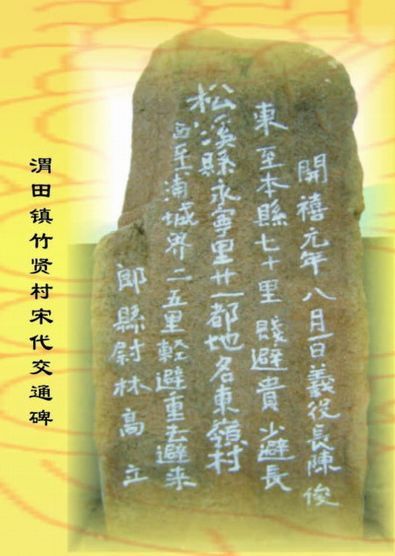 開禧元年八月一日義役長陳俊
東至本縣七十里賤避貴少避長
松溪縣永寧里廿一都地名東嶺村
西至浦城界二五里輕避重去避来
郎縣尉林高立
渭田镇竹贤村宋代交通碑